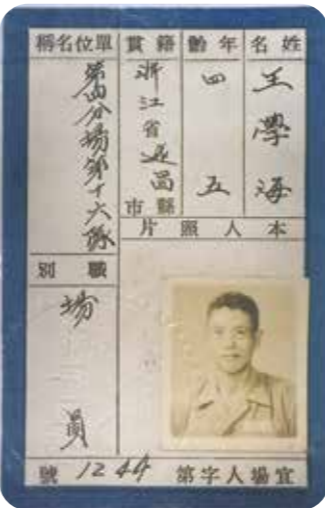 姓名
王學海
年齡
四五
籍貫
浙江省昌
縣市
單位名稱
第四分場第十六隊
本人照片
職別
場員
宜場人字第1244號